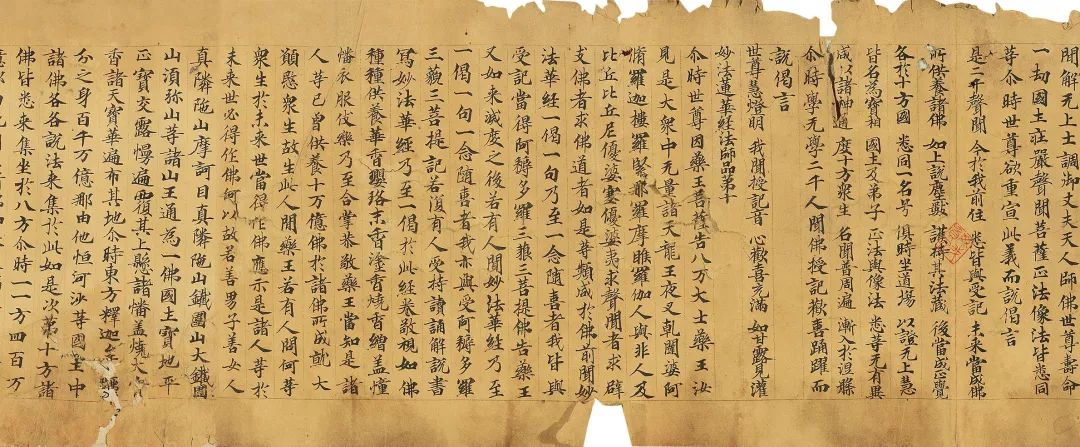 間解无上士調御丈夫天人師佛世尊壽命
一劫國土莊嚴聲聞菩薩正法像法皆悉同
等尒時世尊欲重宣此義而說偈言
是二千聲聞 今於我前住 悉皆與受記 未來當成佛
所供養諸佛 如上說塵數 護持其法藏 後當成正覺
各於十方國 悉同一名号 俱時坐道場 以證无上慧
皆名為寶相 國土及弟子 正法與像法 悉等无有異
咸以諸神通 度十方衆生 名聞普周遍 漸入於涅槃
尒時學无學二千人聞佛授記歡喜踊躍而
說偈言
世尊慧燈明 我聞授記音 心歡喜充滿 如甘露見灌
妙法蓮華經法師品第十
尒時世尊因藥王菩薩告八万大士藥王汝
見是大衆中无量諸天龍王夜叉乹闥婆阿
脩羅迦樓羅緊那羅摩睺羅伽人與非人及
比丘比丘尼優婆塞優婆夷求聲聞者求辟
支佛者求佛道者如是等類咸於佛前聞妙
法華經一偈一句乃至一念隨喜者我皆與
受記當得阿耨多羅三藐三菩提佛告藥王
又如來滅度之後若有人聞妙法華經乃至
一偈一句一念隨喜者我亦與受阿耨多羅
三藐三菩提記若復有人受持讀誦解說書
寫妙法華經乃至一偈於此經卷敬視如佛
種種供養華香瓔珞末香塗香燒香繒蓋幢
幡衣服伎樂乃至合掌恭敬藥王當知是諸
人等已曾供養十万億佛於諸佛所成就大
願愍衆生故生此人間藥王若有人問何等
衆生於未來世當得作佛應示是諸人等於
未來世必得作佛何以故若善男子善女人
真隣陁山摩訶目真隣陁山鐵圍山大鐵圍
山須弥山等諸山王通為一佛國土寶地平
正寶交露幔遍覆其上懸諸幡蓋燒大
香諸天寶華遍布其地尒時東方釋迦牟
分之身百千万億那由他恒河沙等國土中
諸佛各各說法來集於此如是次苐十方諸
佛皆悉來集坐於八方尒時一一方四百万